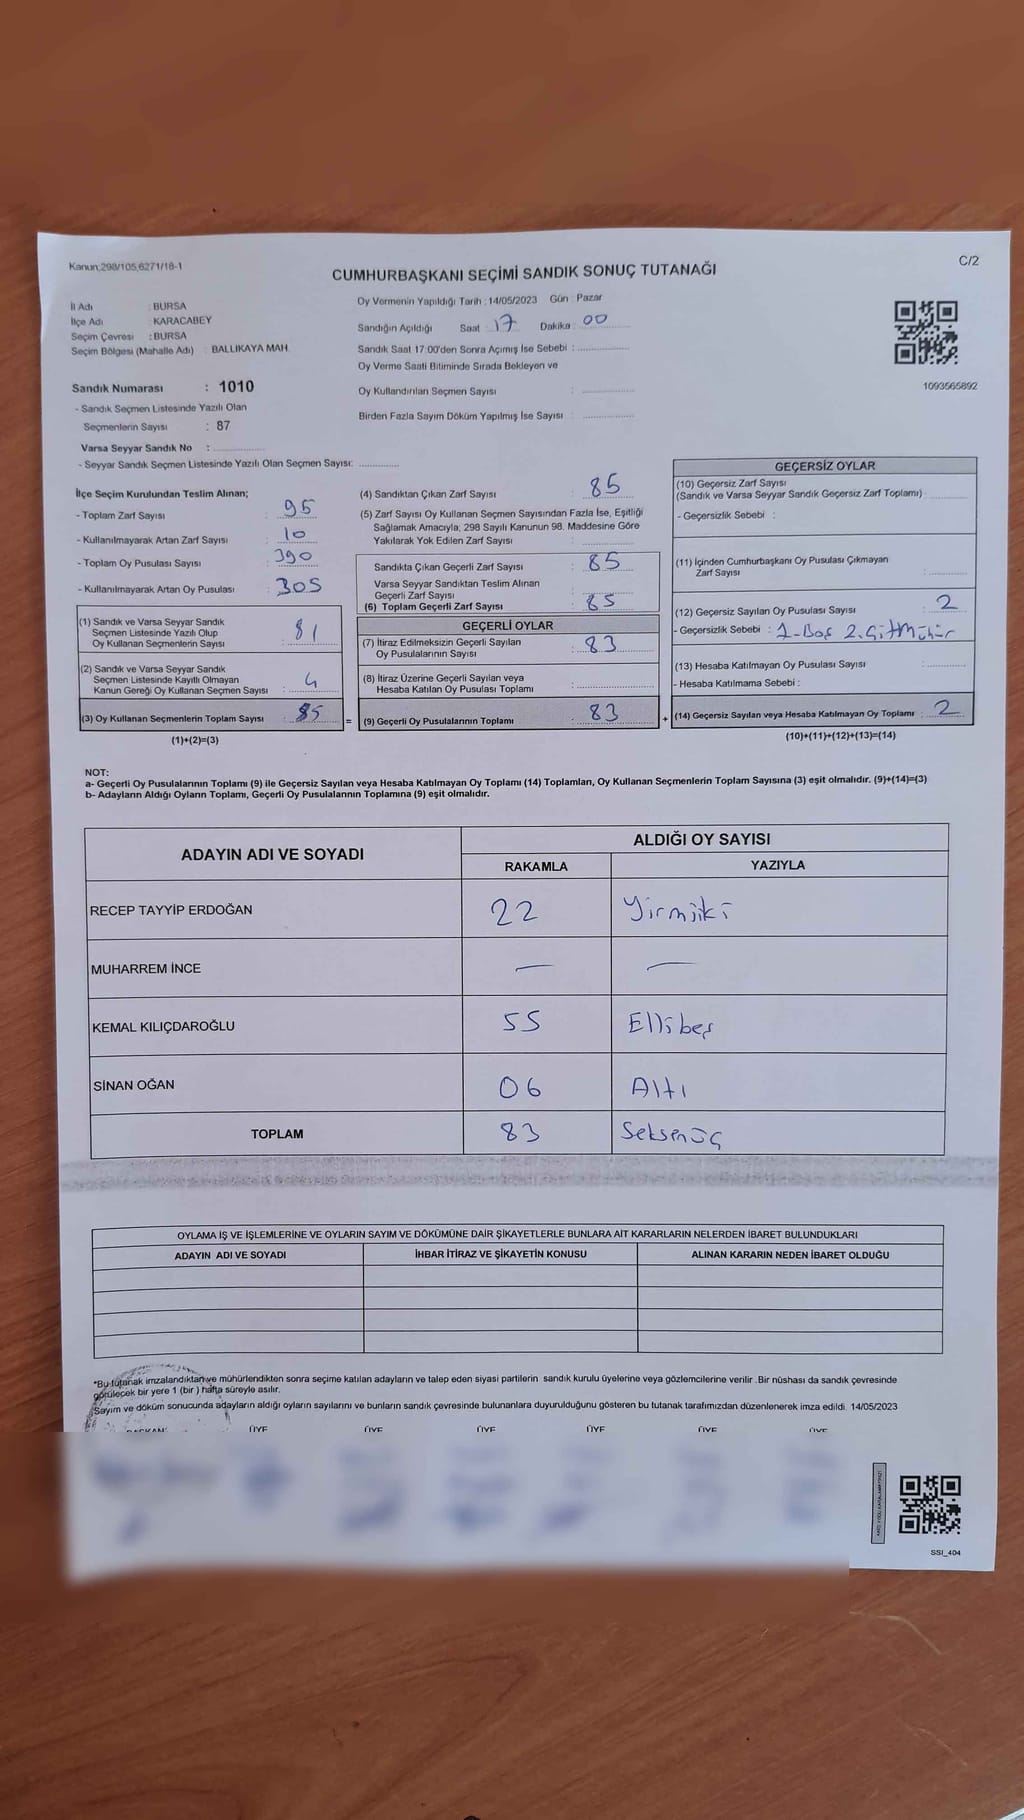 Kanun,298/105,6271/18-1
C/2
CUMHURBAŞKANI SEÇİMİ SANDIK SONUÇ TUTANAĞI
İl Adı : BURSA
İlçe Adı : KARACABEY
Seçim Çevresi : BURSA
Seçim Bölgesi (Mahalle Adı) : BALLIKAYA MAH.
Sandık Numarası : 1010
- Sandık Seçmen Listesinde Yazılı Olan
Seçmenlerin Sayısı : 87
Varsa Seyyar Sandık No :
- Seyyar Sandık Seçmen Listesinde Yazılı Olan Seçmen Sayısı:
Oy Vermenin Yapıldığı Tarih : 14/05/2023 Gün : Pazar
Sandığın Açıldığı Saat : 17 Dakika : 00
Sandık Saat 17:00'den Sonra Açımış İse Sebebi :
Oy Verme Saati Bitiminde Sırada Bekleyen ve
Oy Kullandırılan Seçmen Sayısı :
Birden Fazla Sayım Döküm Yapılmış İse Sayısı :
1093565892
İlçe Seçim Kurulundan Teslim Alınan;
- Toplam Zarf Sayısı : 95
- Kullanılmayarak Artan Zarf Sayısı : 10
- Toplam Oy Pusulası Sayısı : 390
- Kullanılmayarak Artan Oy Pusulası : 305
(1) Sandık ve Varsa Seyyar Sandık
Seçmen Listesinde Yazılı Olup
Oy Kullanan Seçmenlerin Sayısı : 81
(2) Sandık ve Varsa Seyyar Sandık
Seçmen Listesinde Kayıtlı Olmayan
Kanun Gereği Oy Kullanan Seçmen Sayısı : 4
(3) Oy Kullanan Seçmenlerin Toplam Sayısı : 85 =
(1)+(2)=(3)
(4) Sandıktan Çıkan Zarf Sayısı : 85
(5) Zarf Sayısı Oy Kullanan Seçmen Sayısından Fazla İse, Eşitliği
Sağlamak Amacıyla; 298 Sayılı Kanunun 98. Maddesine Göre
Yakılarak Yok Edilen Zarf Sayısı :
Sandıkta Çıkan Geçerli Zarf Sayısı : 85
Varsa Seyyar Sandıktan Teslim Alınan
Geçerli Zarf Sayısı
(6) Toplam Geçerli Zarf Sayısı : 85
GEÇERLİ OYLAR
(7) İtiraz Edilmeksizin Geçerli Sayılan
Oy Pusulalarının Sayısı : 83
(8) İtiraz Üzerine Geçerli Sayılan veya
Hesaba Katılan Oy Pusulası Toplamı :
(9) Geçerli Oy Pusulalarının Toplamı : 83 +
GEÇERSİZ OYLAR
(10) Geçersiz Zarf Sayısı
(Sandık ve Varsa Seyyar Sandık Geçersiz Zarf Toplamı) :
- Geçersizlik Sebebi :
(11) İçinden Cumhurbaşkanı Oy Pusulası Çıkmayan
Zarf Sayısı :
(12) Geçersiz Sayılan Oy Pusulası Sayısı : 2
- Geçersizlik Sebebi : 1-Boş 2.
(13) Hesaba Katılmayan Oy Pusulası Sayısı :
- Hesaba Katılmama Sebebi :
(14) Geçersiz Sayılan veya Hesaba Katılmayan Oy Toplamı : 2
(10)+(11)+(12)+(13)=(14)
NOT:
a- Geçerli Oy Pusulalarının Toplamı (9) ile Geçersiz Sayılan veya Hesaba Katılmayan Oy Toplamı (14) Toplamları, Oy Kullanan Seçmenlerin Toplam Sayısına (3) eşit olmalıdır. (9)+(14)=(3)
b- Adayların Aldığı Oyların Toplamı, Geçerli Oy Pusulalarının Toplamına (9) eşit olmalıdır.
ADAYIN ADI VE SOYADI ALDIĞI OY SAYISI
RAKAMLA YAZIYLA
RECEP TAYYİP ERDOĞAN 22 Yirmiiki
MUHARREM İNCE — —
KEMAL KILIÇDAROĞLU 55 Ellibeş
SİNAN OĞAN 06 Altı
TOPLAM 83 Seksenüç
OYLAMA İŞ VE İŞLEMLERİNE VE OYLARIN SAYIM VE DÖKÜMÜNE DAİR ŞİKAYETLERLE BUNLARA AİT KARARLARIN NELERDEN İBARET BULUNDUKLARI
ADAYIN ADI VE SOYADI İHBAR İTİRAZ VE ŞİKAYETİN KONUSU ALINAN KARARIN NEDEN İBARET OLDUĞU
*Bu tutanak imzalandıktan ve mühürlendikten sonra seçime katılan adayların ve talep eden siyasi partilerin sandık kurulu üyelerine veya gözlemcilerine verilir .Bir nüshası da sandık çevresinde
görülecek bir yere 1 (bir ) hafta süreyle asılır.
Sayım ve döküm sonucunda adayların aldığı oyların sayılarını ve bunların sandık çevresinde bulunanlara duyurulduğunu gösteren bu tutanak tarafımızdan düzenlenerek imza edildi. 14/05/2023
BAŞKAN ÜYE ÜYE ÜYE ÜYE ÜYE ÜYE
SSI_404